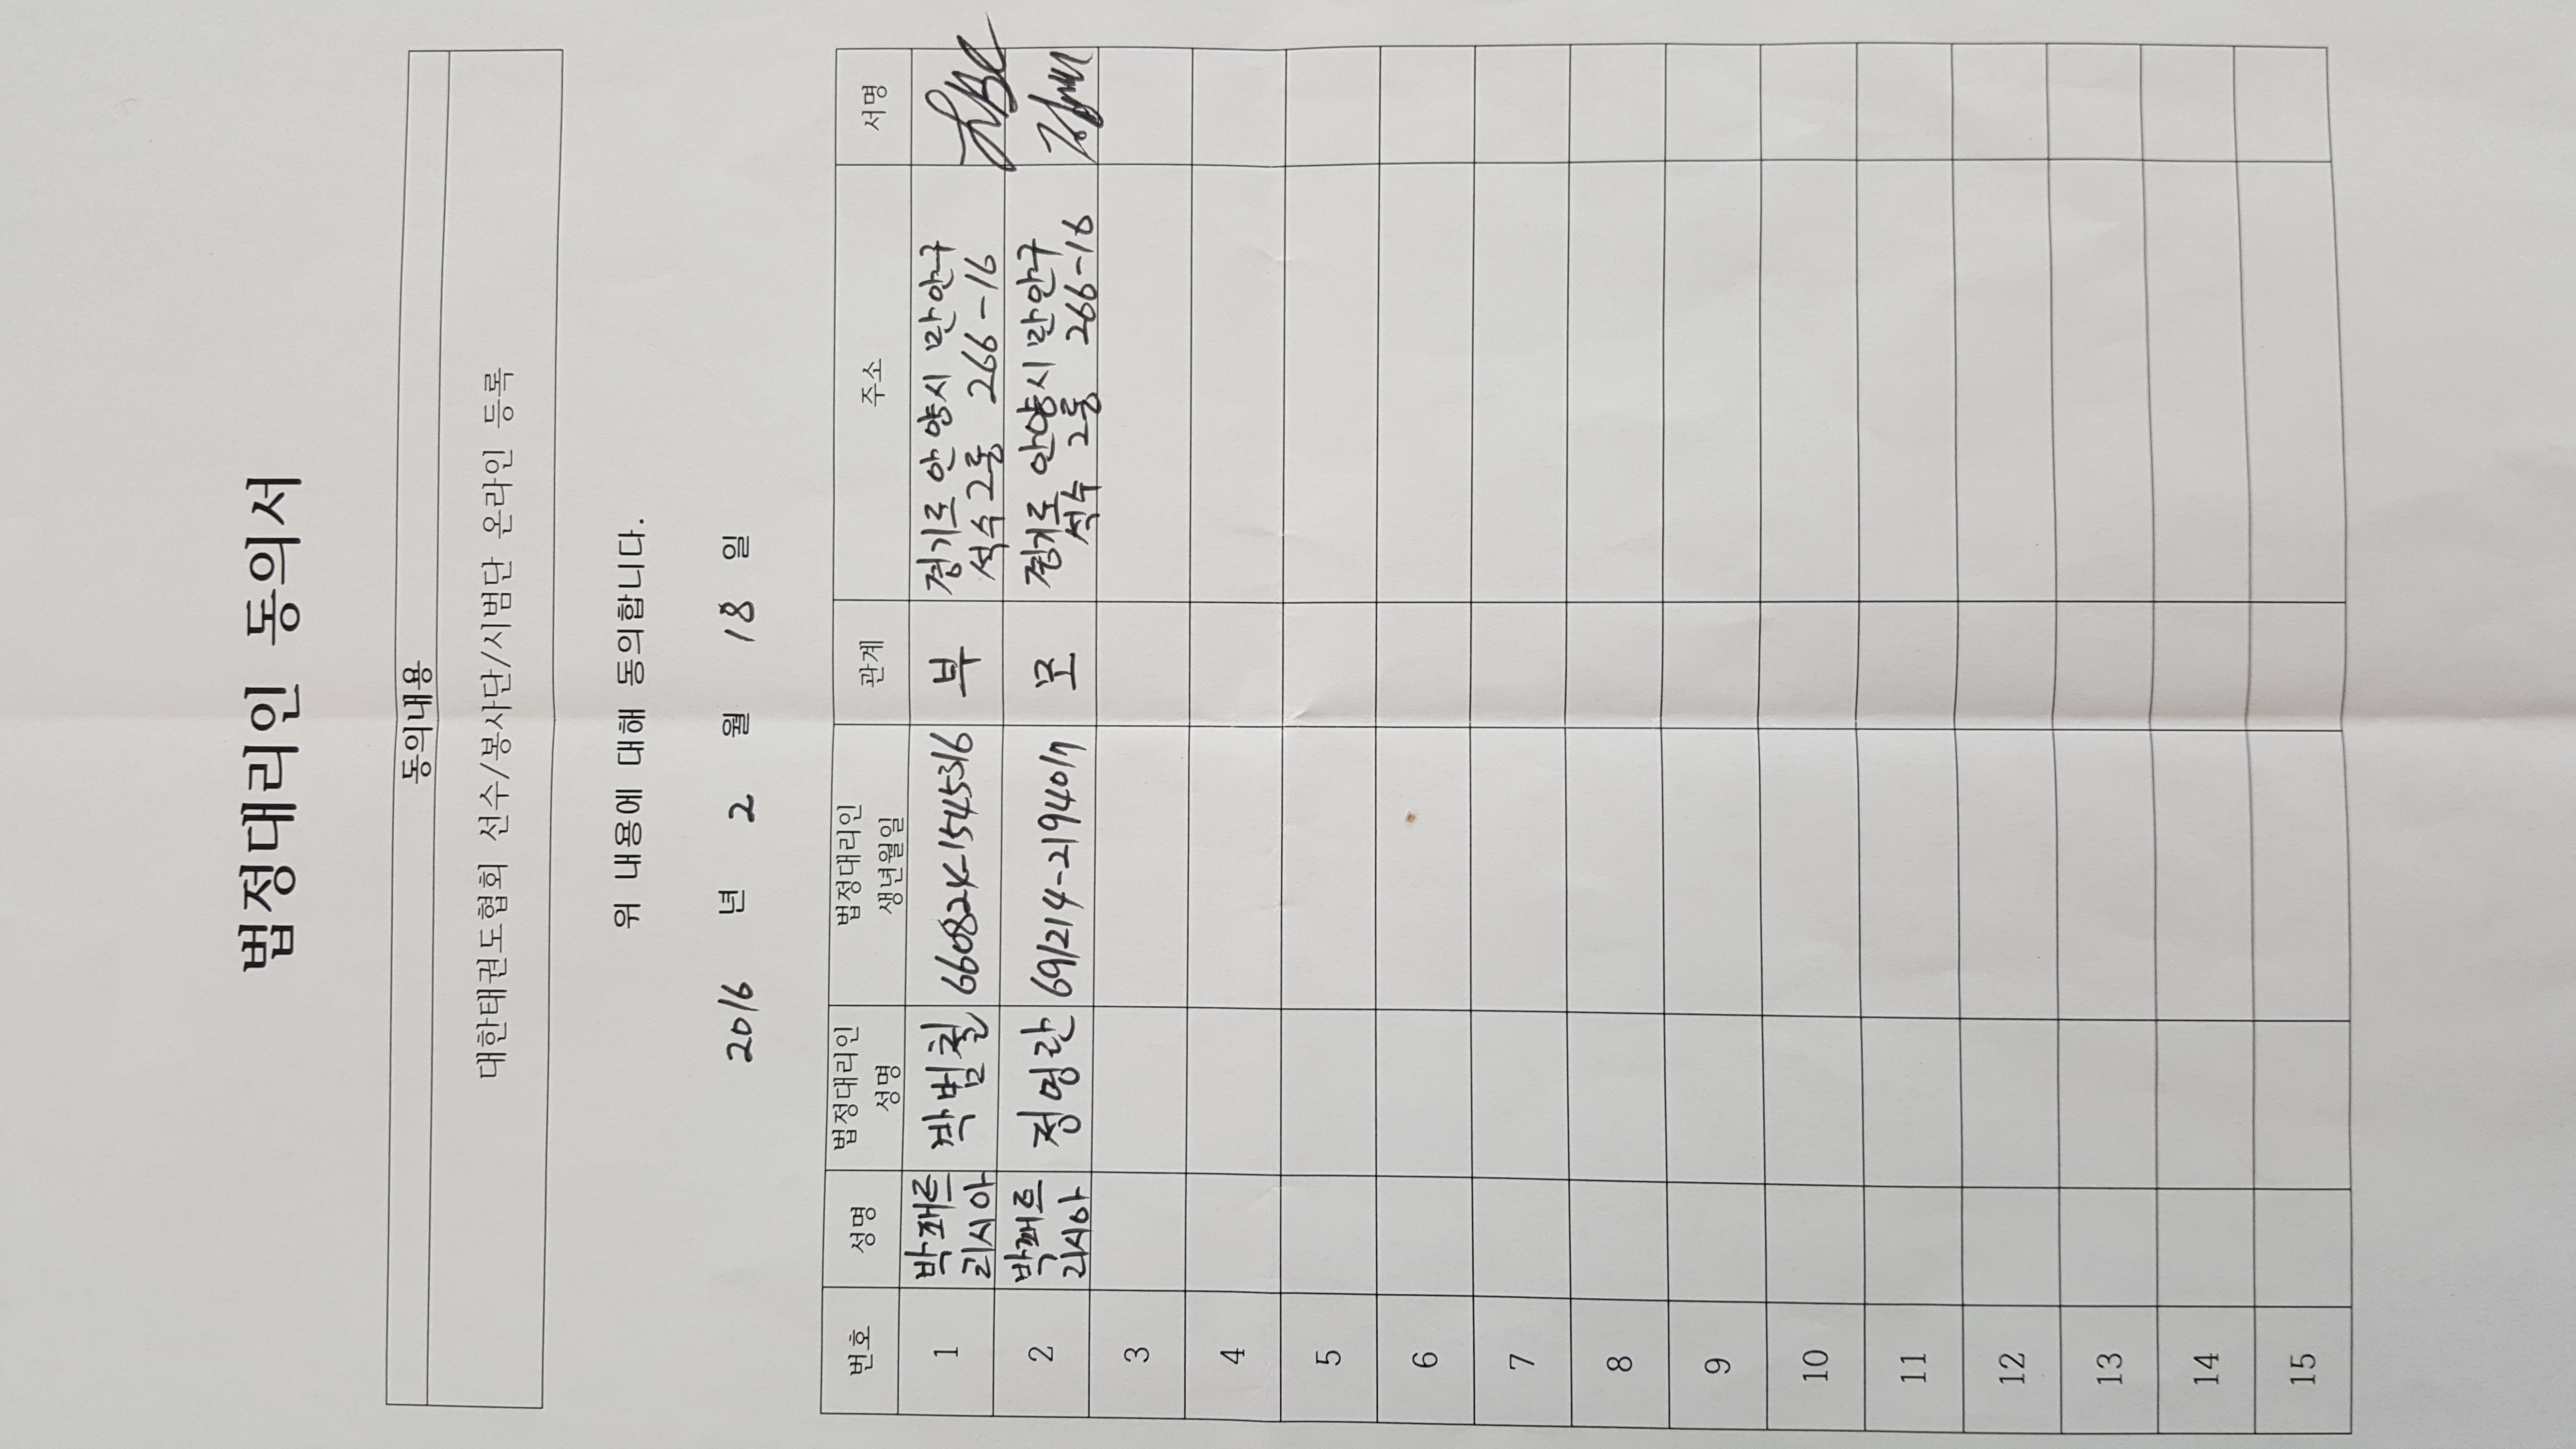 법정대리인 동의서
동의내용
대한태권도협회 선수/봉사단/시범단 온라인 등록
위 내용에 대해 동의합니다.
2016 년 2 월 18 일
번호 성명 법정대리인 성명 법정대리인 생년월일 관계 주소 서명
1 박패트 박범철 부 경기도 안양시 만안구
리시아 석수2동 266-16
2 박패트 정영란 691214-2194017 모 경기도 안양시 만안구
리시아 석수2동 266-16
3
4
5
6
7
8
9
10
11
12
13
14
15